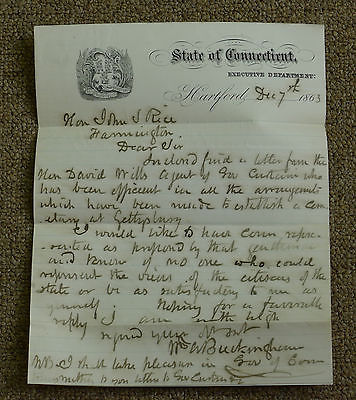 State of Connecticut,
EXECUTIVE DEPARTMENT:
Hartford, Dec 7th 1863
Hon John S Rice
Farmington
Dear Sir
Inclosed find a letter from the
Hon David Wills Agent of Gov Curtin who
has been efficient in all the arrangements
which have been made to establish a cem
etery at Gettysburg
I would like to have Conn repre-
sented as proposed by that gentleman
and know of no one who could
represent the views of the citizens of the
state or be as satisfactory to me as
yourself Hoping for a favorable
reply I am with high
regard your obt svt
Wm A Buckingham
NB I shall take pleasure in Gov of Conn
your letter to Gov Curtin